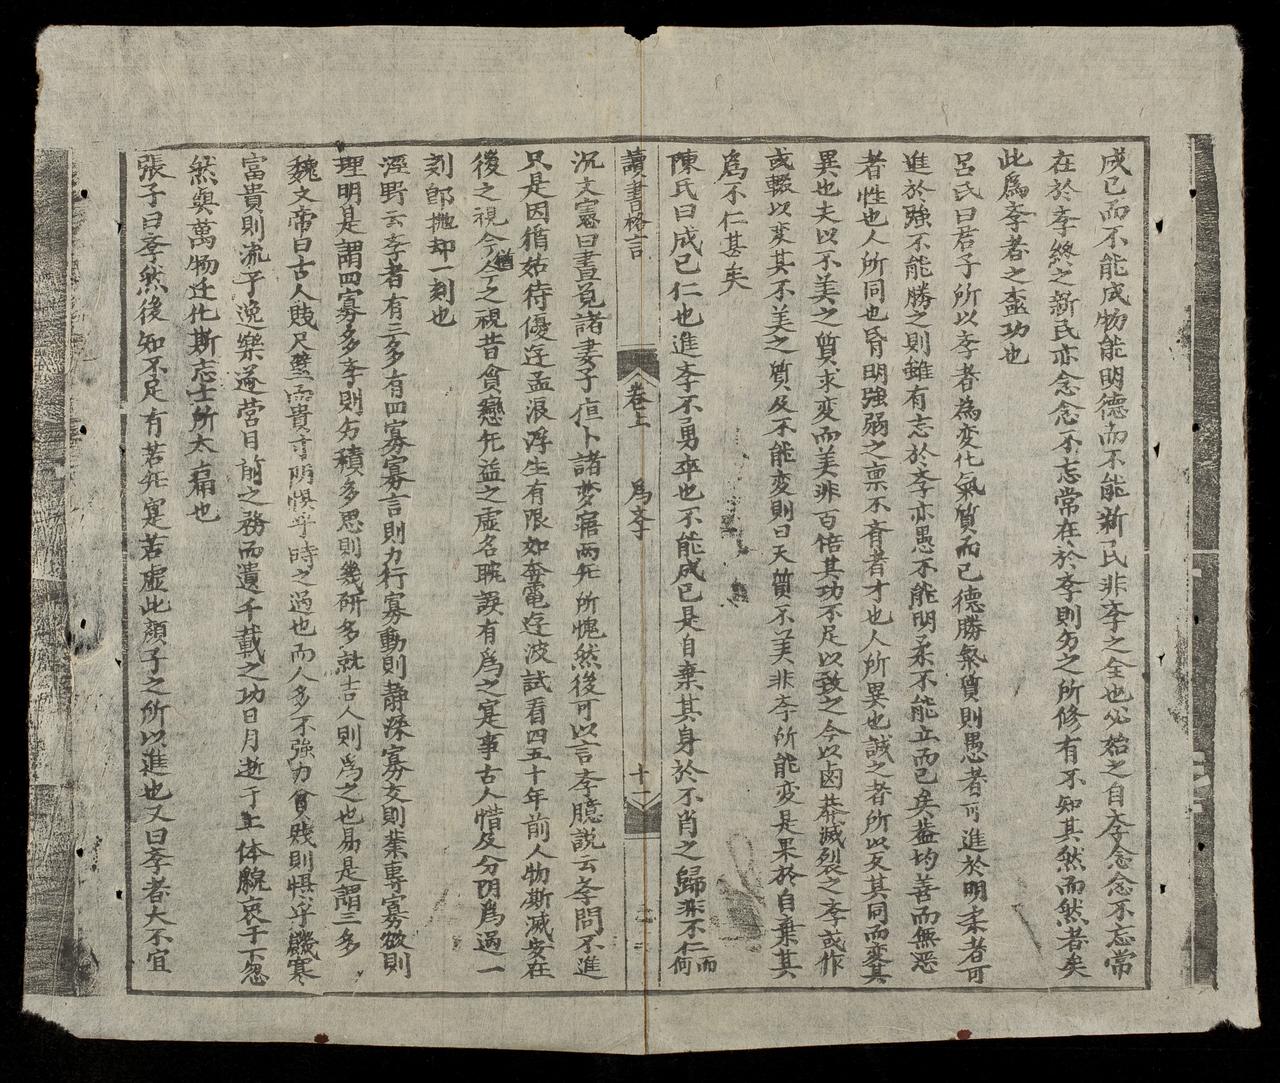 成已而不能成物能明德而不能新民非孝之全也必始之自孝念念不忘常
在於孝終之新民亦念念不忘常在於孝則身之所修有不知其然而然者矣
此爲孝者之盡功也
呂氏曰君子所以孝者為変化氣質而已德勝氣質則愚者可進於明柔者可
進於強不能勝之則雖有志於孝亦愚不能明柔不能立而已矣盖均善而無惡
者性也人所同也昏明強弱之禀不齊者才也人所異也誠之者所以反其同而変其
異也夫以不美之質求変而美非百倍其功不足以致之今以鹵莽滅裂之孝或作
或輟以変其不美之質及不能変則曰天質不美非孝所能変是果於自棄其
爲不仁甚矣
陳氏曰成已仁也進孝不勇卒也不能成已是自棄其身於不肖之歸非不仁而何
讀書格言 卷上 爲孝 十一
況文寔曰晝見諸妻子夜卜諸梦寐兩无所愧然後可以言孝臆説云孝問不進
只是因循姑待優逰孟浪浮生有限如奔電逰波試看四五十年前人物斯滅安在
後之視今猶今之視昔貪戀无益之虛名耽誤有爲之寔事古人惜及分阴爲過一
刻即抛却一刻也
涇野云孝者有三多有四寡寡言則力行寡動則静深寡交則業專寡欲則
理明是謂四寡多孝則多積多思則幾研多就吉人則爲之也易是謂三多
魏文帝曰古人賎尺璧而貴寸阴惧乎時之過也而人多不強力貧賎則懼於饑寒
富貴則流于逸樂遂營目前之務而遺千載之功日月逝于上体貌衰于下忽
然與萬物迁化斯志士所太痛也
張子曰孝然後知不足有若无寔若虛此顏子之所以進也又曰孝者大不宜